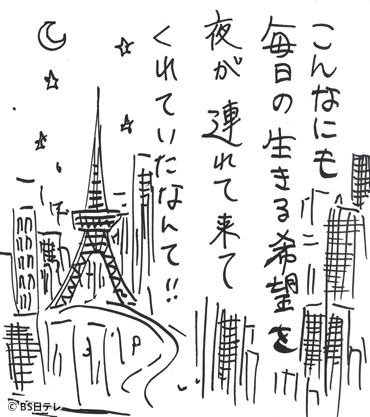 こんなにも
毎日の生きる希望を
夜が連れて来て
くれていたなんて!!
©BS日テレ